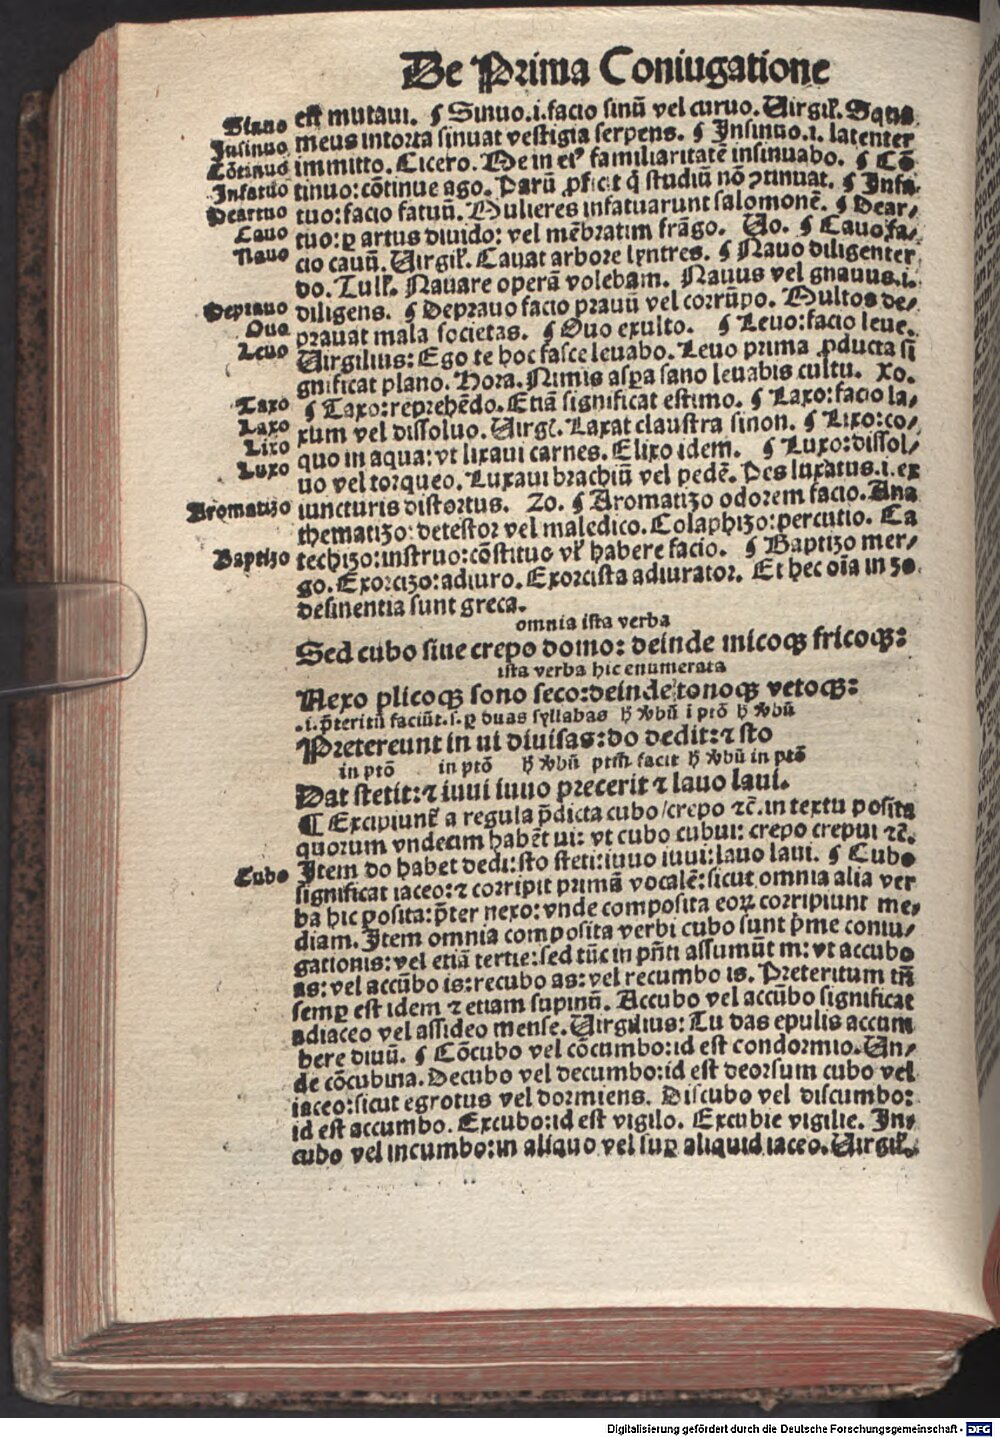 De Prima Coniugatione
est mutaui. ¶ Sinuo.i.facio sinū vel curuo. Uirgiƚ. Squa
Sinuo
meus intorta sinuat vestigia serpens. ¶ Insinuo.i. latenter
Insinuo
immitto. Cicero. Me in eiꝰ familiaritatē insinuabo. ¶ Cō
Cōtinuo
tinuo: cōtinue ago. Parū ꝓficit q̄ studiū nō ꝯtinuat. ¶ Infa-
Infatuo
tuo: facio fatuū. Mulieres infatuarunt salomonē. ¶ Dear/
Deartuo
tuo: ꝑ artus diuido: vel mēbratim frāgo. Uo. ¶ Cauo fa/
Cauo
cio cauū. Uirgiƚ. Cauat arbore lyntres. ¶ Nauo diligenter
Nauo
do. Tulƚ. Nauare operā volebam. Nauus vel gnauus.i.
diligens. ¶ Deprauo facio prauū vel corrūpo. Multos de/
Deprauo
prauat mala societas. ¶ Ouo exulto. ¶ Leuo: facio leue.
Ouo
Uirgilius: Ego te hoc fasce leuabo. Leuo prima ꝓducta si
Leuo
gnificat plano. Hora. Nimis aspa sano leuabis cultu. Xo.
¶ Taxo: reprehēdo. Etiā significat estimo. ¶ Laxo: facio la/
Taxo
xum vel dissoluo. Uirgƚ. Laxat claustra sinon. ¶ Lixo: co/
Laxo
quo in aqua: vt lixaui carnes. Elixo idem. ¶ Luxo: dissol/
Lixo
uo vel torqueo. Luxaui brachiū vel pedē. Pes luxatus.i.ex
Luxo
iuncturis distortus. Zo. ¶ Aromatizo odorem facio. Ana
Aromatizo
thematizo: detestor vel maledico. Colaphizo: percutio. Ca
techizo: instruo: cōstituo vƚ habere facio. ¶ Baptizo mer/
Baptizo
go. Exorcizo: adiuro. Exorcista adiurator. Et hec oīa in zo
desinentia sunt greca.
omnia ista verba
Sed cubo siue crepo domo: deinde micoqꝫ fricoqꝫ:
ista verba hic enumerata
Nexo plicoqꝫ sono seco: deinde tonoqꝫ vetoqꝫ:
.i. p̄teritū faciūt.s. ꝑ duas syllabas hͦ ꝟbū i ptō hͦ ꝟbū
Pretereunt in ui diuisas: do dedit: ⁊ sto
in ptō in ptō hͦ ꝟbū ptm̄ facit hͦ ꝟbū in ptō
Dat stetit: ⁊ iuui iuuo precerit ⁊ lauo laui.
¶ Excipiunƚ a regula p̄dicta cubo/crepo ⁊c̄. in textu posita
quorum vndecim habēt ui: vt cubo cubui: crepo crepui ⁊c̄.
Item do habet dedi: sto steti: iuuo iuui: lauo laui. ¶ Cubo
Cubo
significat iaceo: ⁊ corripit primā vocalē: sicut omnia alia ver
ba hic posita: p̄ter nexo: vnde composita eoꝝ corripiunt me/
diam. Item omnia composita verbi cubo sunt p̄me coniu/
gationis: vel etiā tertie: sed tūc in pn̄ti assumūt m: vt accubo
as: vel accūbo is: recubo as: vel recumbo is. Preteritum tn̄
semꝑ est idem ⁊ etiam supinū. Accubo vel accūbo significat
adiaceo vel assideo mense. Uirgilius: Tu das epulis accum
bere diuū. ¶ Cōcubo vel cōcumbo: id est condormio. Un/
de cōcubina. Decubo vel decumbo: id est deorsum cubo vel
iaceo: sicut egrotus vel dormiens. Discubo vel discumbo:
id est accumbo. Excubo: id est vigilo. Excubie vigilie. In/
cubo vel incumbo: in aliquo vel suꝑ aliquid iaceo. Uirgiƚ.
Digitalisierung gefördert durch die Deutsche Forschungsgemeinschaft - DFG